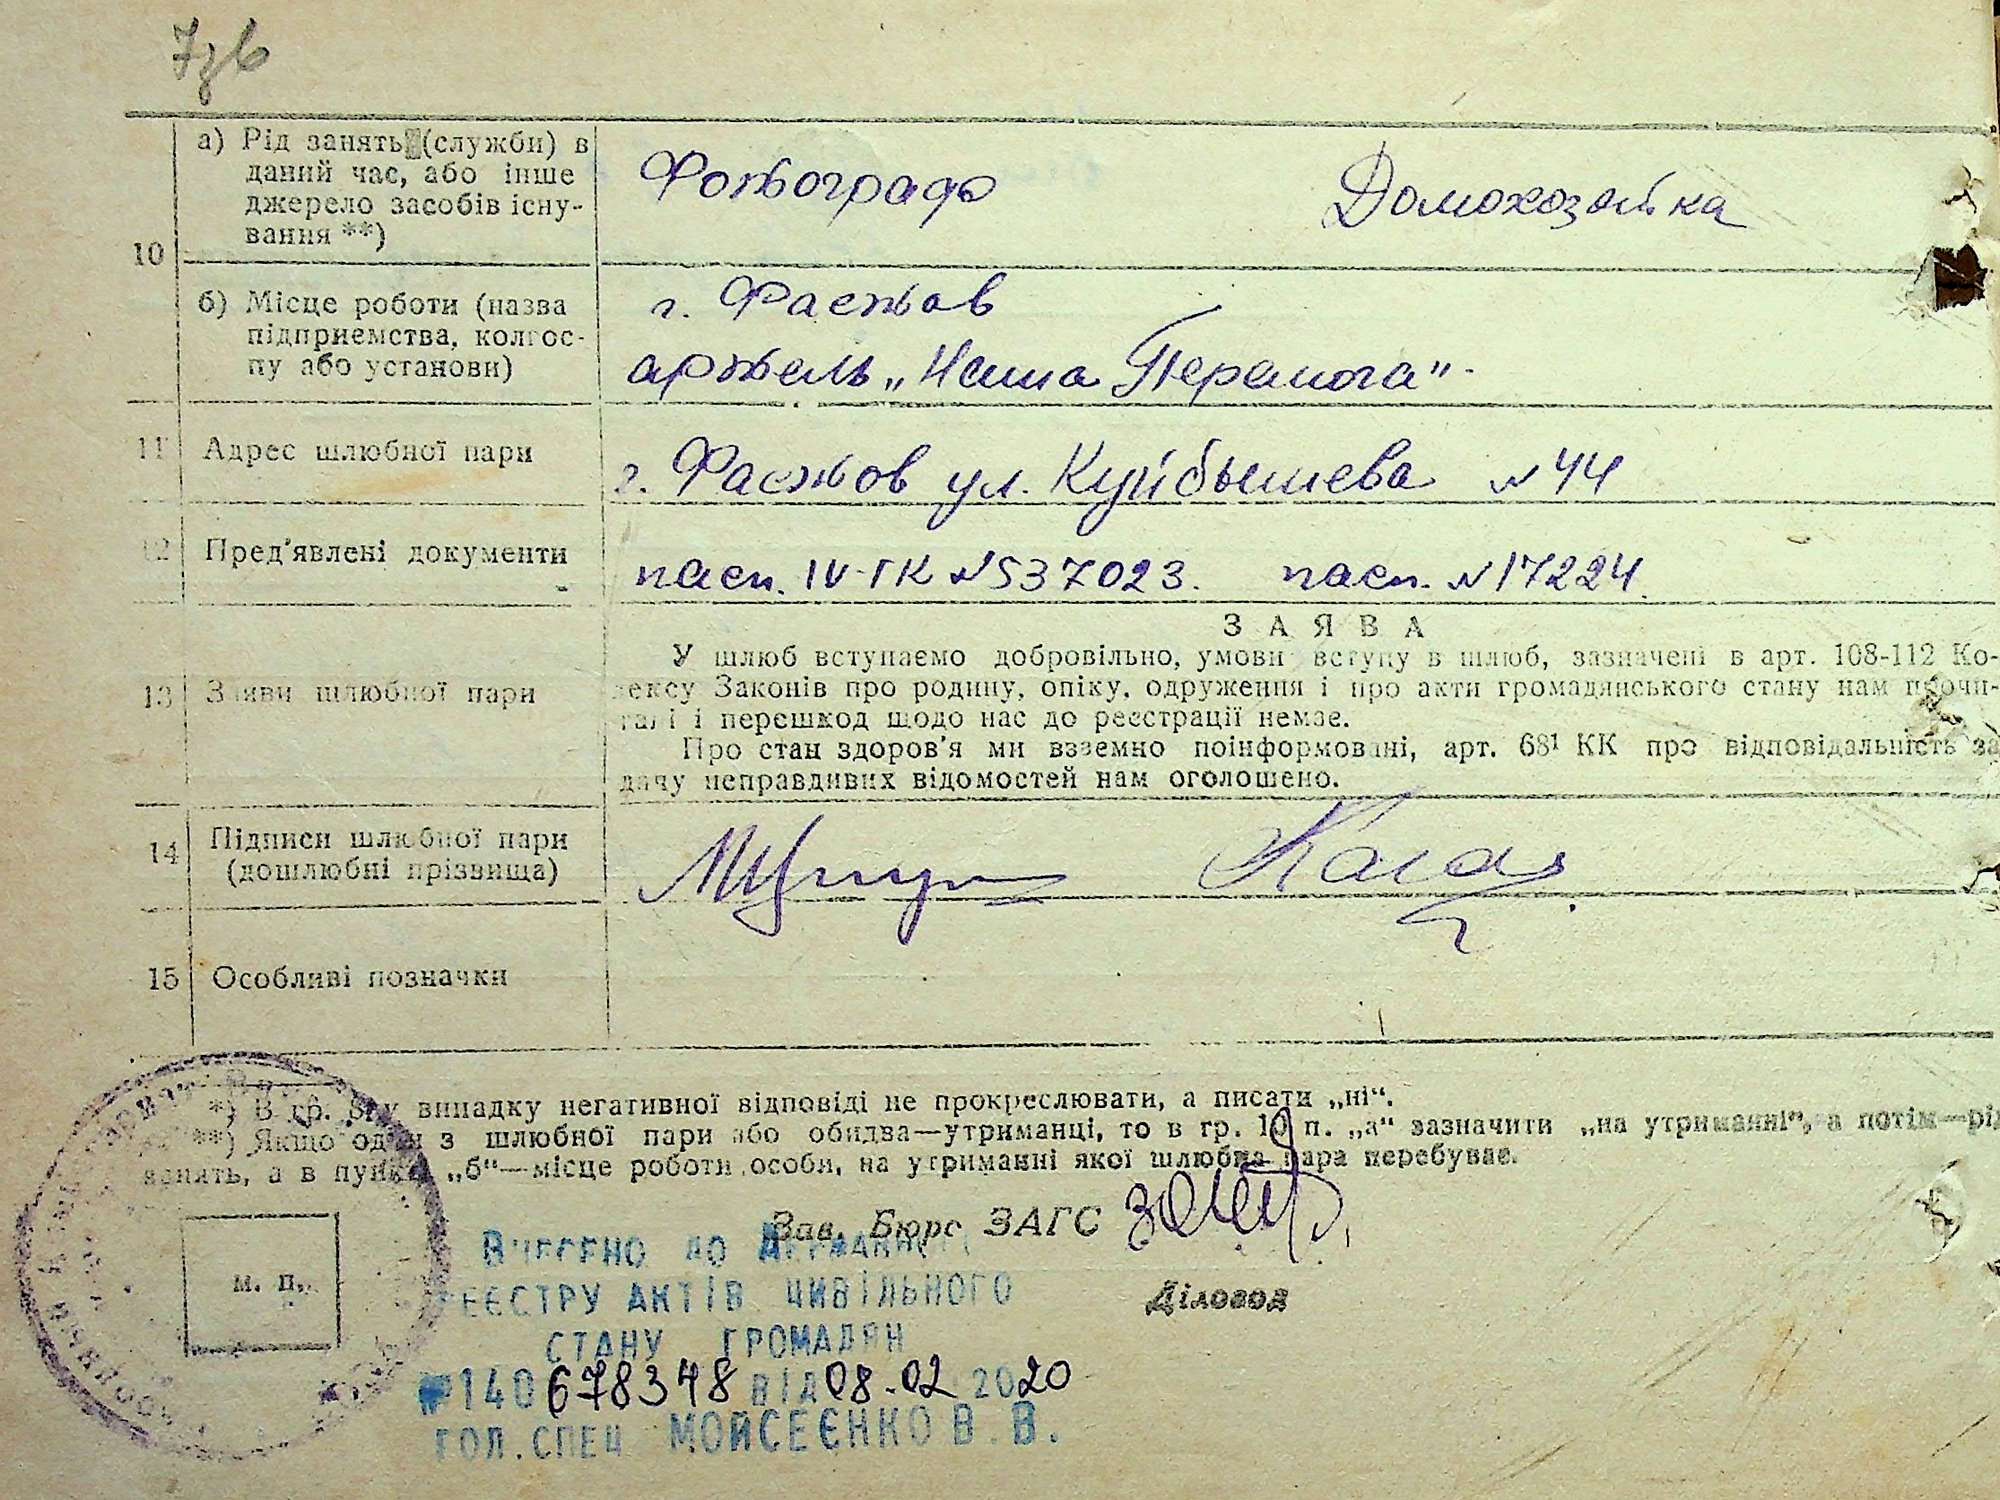 7зв
10
а) Рід занять (служби) в
даний час, або інше
джерело засобів існу-
вання **)
Фотограф
Домохозяйка
б) Місце роботи (назва
підприємства, колгос-
пу або установи)
г. Фастов
артель „Наша Перамога"
11 Адрес шлюбної пари
г. Фастов ул. Куйбышева №44
12 Пред'явлені документи
пасп. IV-ГК №537023. пасп. №17224.
13 Заяви шлюбної пари
ЗАЯВА
У шлюб вступаємо добровільно, умови вступу в шлюб, зазначені в арт. 108-112 Ко-
дексу Законів про родину, опіку, одруження і про акти громадянського стану нам прочи-
тані і перешкод щодо нас до реєстрації немає.
Про стан здоров'я ми взаємно поінформовані, арт. 68¹ КК про відповідальність за
дачу неправдивих відомостей нам оголошено.
14 Підписи шлюбної пари
(дошлюбні прізвища)
15 Особливі позначки
*) В гр. 8 у випадку негативної відповіді не прокреслювати, а писати „ні".
**) Якщо один з шлюбної пари або обидва—утриманці, то в гр. 10 п. „а" зазначити „на утриманні", а потім—рід
занять, а в пункті „б"—місце роботи особи, на утриманні якої шлюбна пара перебуває.
Зав. Бюро ЗАГС
м. п.
Діловод
ВНЕСЕНО ДО ДЕРЖАВНОГО
РЕЄСТРУ АКТІВ ЦИВІЛЬНОГО
СТАНУ ГРОМАДЯН
№140678348 від 08.02 2020
ГОЛ.СПЕЦ МОЙСЕЄНКО В.В.